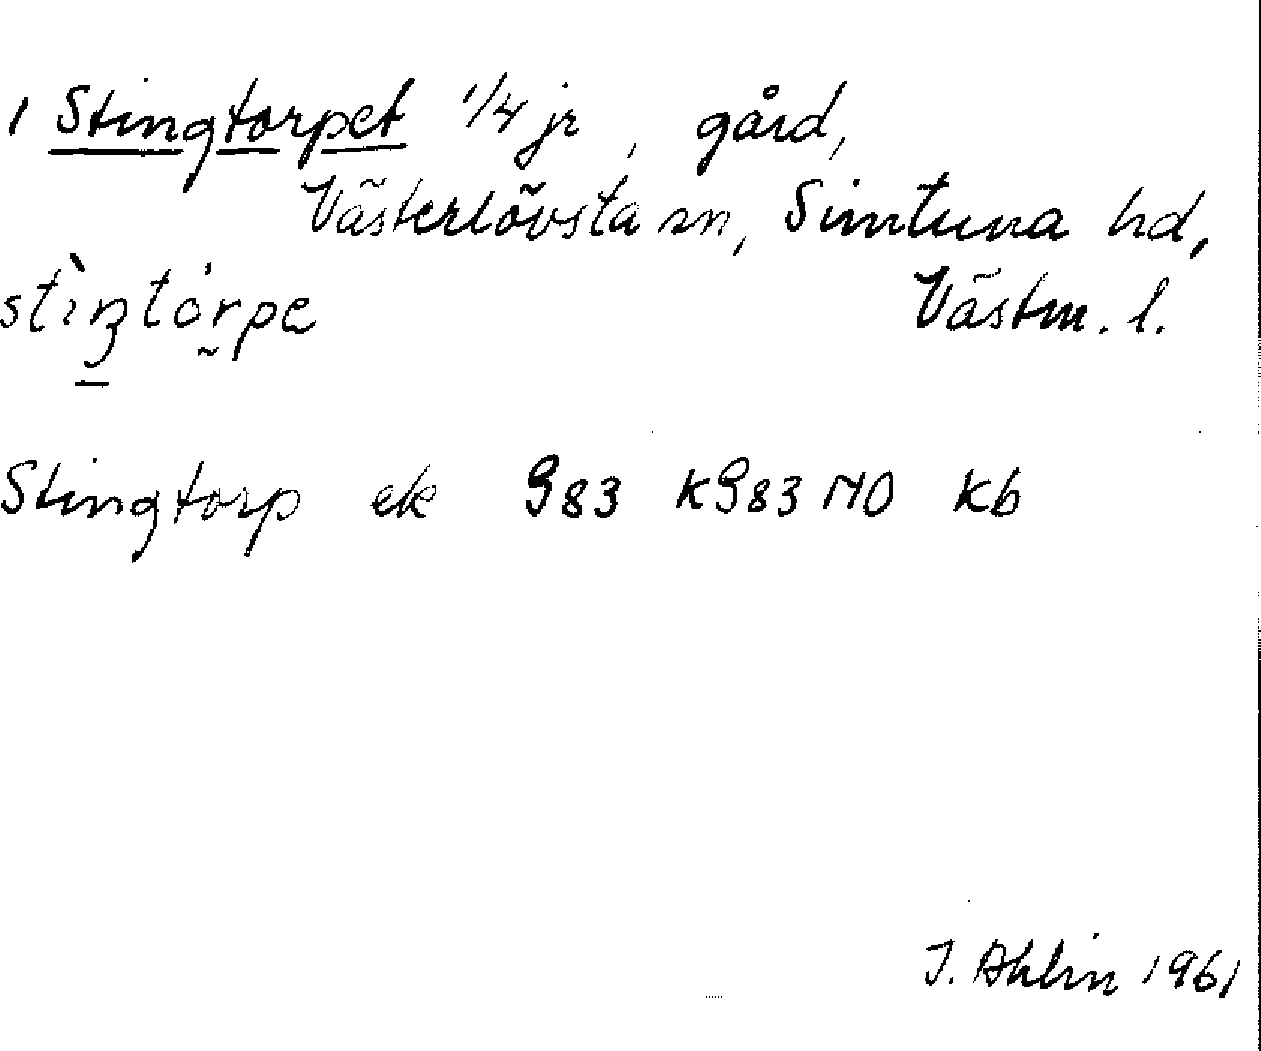 1 Stingtorpet 1/4 jr, gård,
Västerlövsta sn, Simtuna hd,
Västm. l.
stìŋtórpe
Stingtorp ek 983 K983 NO Kb
J. Ahlin 1961